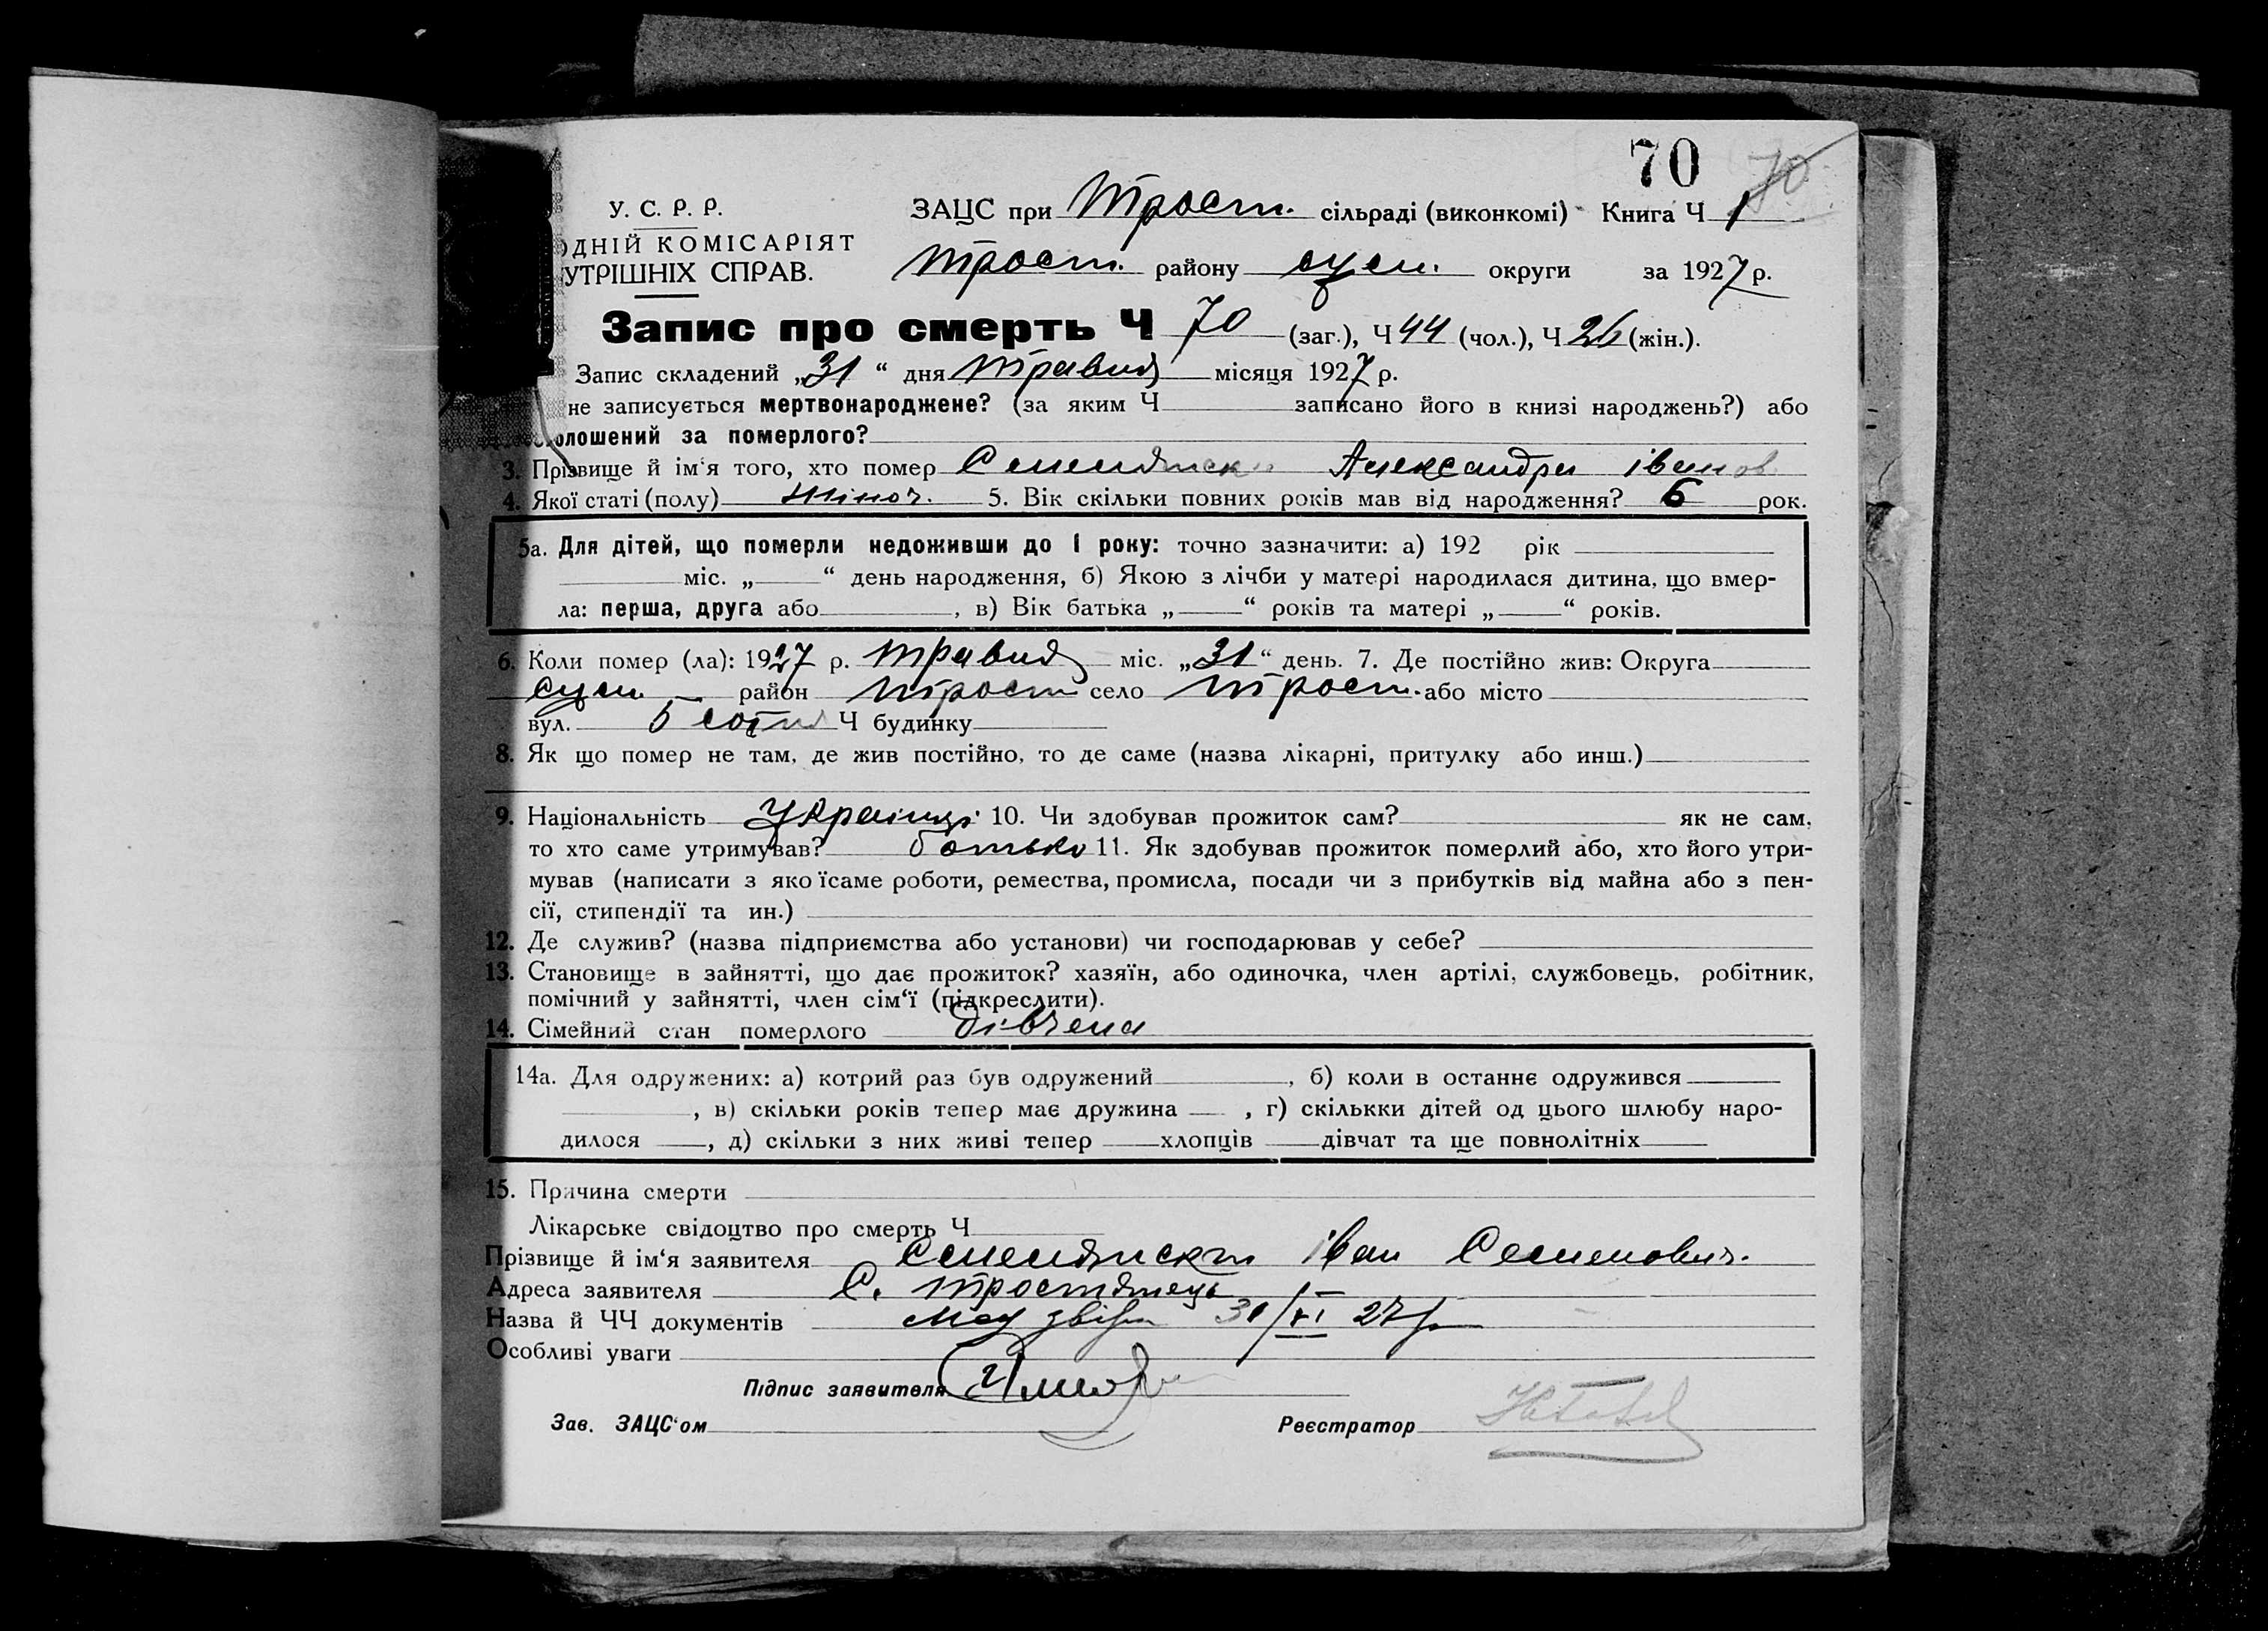 70 70
У. С. Р. Р. ЗАЦС при Трост. сільраді (виконкомі) Книга Ч 1
ОДНІЙ КОМІСАРІЯТ
УТРІШНІХ СПРАВ. Трост. району сум. округи за 1927 р.
Запис про смерть Ч 70 (заг.), Ч 44 (чол.), Ч 26 (жін.).
Запис складений „31“ дня травня місяця 1927 р.
не записується мертвонароджене? (за яким Ч записано його в книзі народжень?) або
олошений за померлого?
3. Прізвище й ім‘я того, хто помер Александра іванов
4. Якої статі (полу) жіноч. 5. Вік скільки повних років мав від народження? 6 рок.
5а. Для дітей, що померли недоживши до 1 року: точно зазначити: а) 192 рік
міс. „ “ день народження, б) Якою з лічби у матері народилася дитина, що вмер-
ла: перша, друга або , в) Вік батька „ “ років та матері „ “ років.
6. Коли помер (ла): 1927 р. травня міс. „31“ день. 7. Де постійно жив: Округа
сум район трост село трост. або місто
вул. 5 сотня Ч будинку
8. Як що помер не там, де жив постійно, то де саме (назва лікарні, притулку або инш.)
9. Національність Україн. 10. Чи здобував прожиток сам? як не сам,
то хто саме утримував? батько 11. Як здобував прожиток померлий або, хто його утри-
мував (написати з яко їсаме роботи, ремества, промисла, посади чи з прибутків від майна або з пен-
сії, стипендії та ин.)
12. Де служив? (назва підприємства або установи) чи господарював у себе?
13. Становище в зайнятті, що дає прожиток? хазяїн, або одиночка, член артілі, службовець, робітник,
помічний у зайнятті, член сім‘ї (підкреслити).
14. Сімейний стан померлого дівчена
14а. Для одружених: а) котрий раз був одружений , б) коли в останнє одружився
, в) скільки років тепер має дружина , г) скількки дітей од цього шлюбу наро-
дилося , д) скільки з них живі тепер хлопців дівчат та ще повнолітніх
15. Причина смерти
Лікарське свідоцтво про смерть Ч
Прізвище й ім‘я заявителя іван Семенович.
Адреса заявителя С. тростянець
Назва й ЧЧ документів 31/VI 27 р
Особливі уваги
Підпис заявителя
Зав. ЗАЦС‘ом Реєстратор